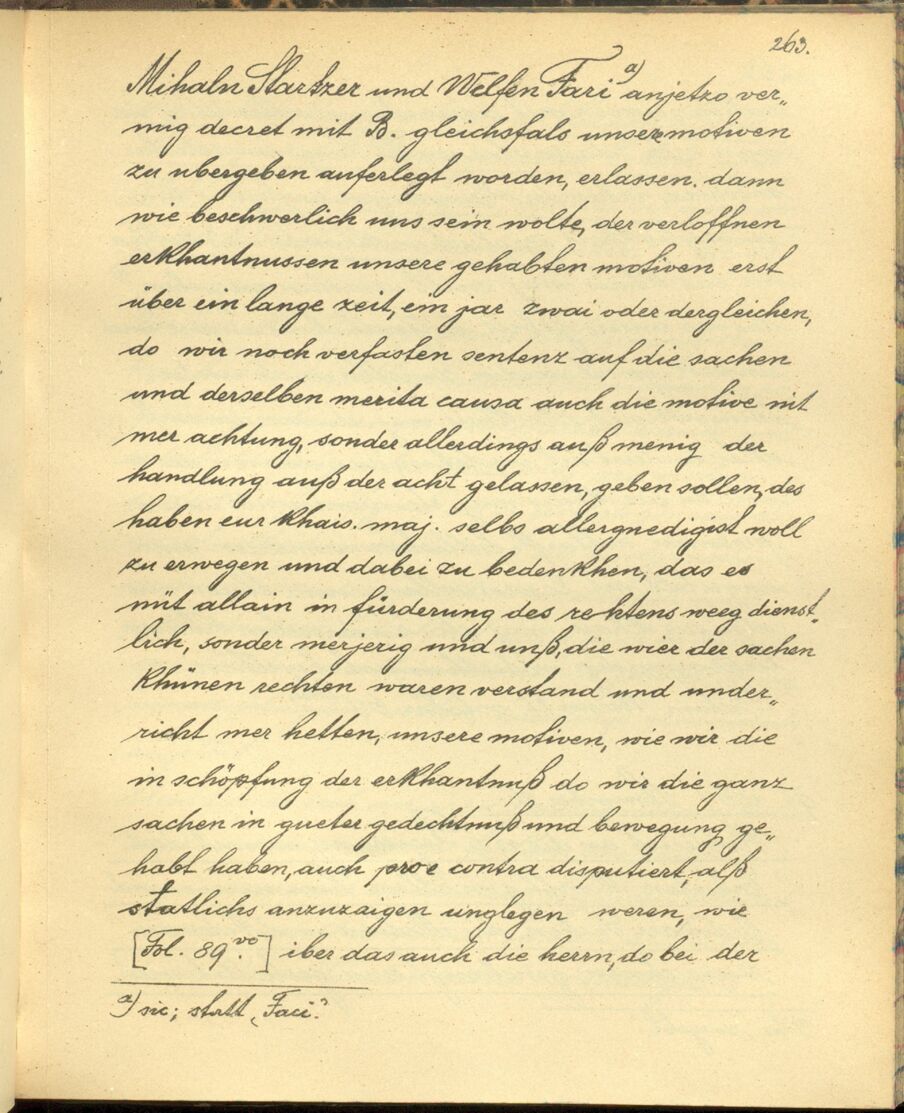 263.
Mihaln Startzer und Welfen Fari a) anjetzo ver„
mig decret mit B. gleichsfals unsere motiven
zu ubergeben auferlegt worden, erlassen. dann
wie beschwerlich uns sein wolte, der verloffnen
erkhantnussen unsere gehabten motiven erst
über ein lange zeit, ein jar zwai oder dergleichen,
do wir noch verfasten sentenz auf die sachen
und derselben merita causa auch die motive nit
mer achtung, sonder allerdings auß menig der
handlung auß der acht gelassen, geben sollen, des
haben eur khais. maj. selbs allergnedigist woll
zu erwegen und dabei zu bedenkhen, das es
nüt allain in fürderung des rechtens weeg dienst„
lich, sonder merjerig und unß, die wier der sachen
khünen rechten waren verstand und under„
richt mer hetten, unsere motiven, wie wir die
in schöpfung der erkhantnuß do wir die ganz
sachen in gueter gedechtnuß und bewegung ge„
habt haben, auch pro e contra disputiert, alß
statlichs anzuzaigen unglegen weren, wie
[Fol. 89 vo.] iber das auch die herrn, do bei der
a) sic; statt „Faci“.